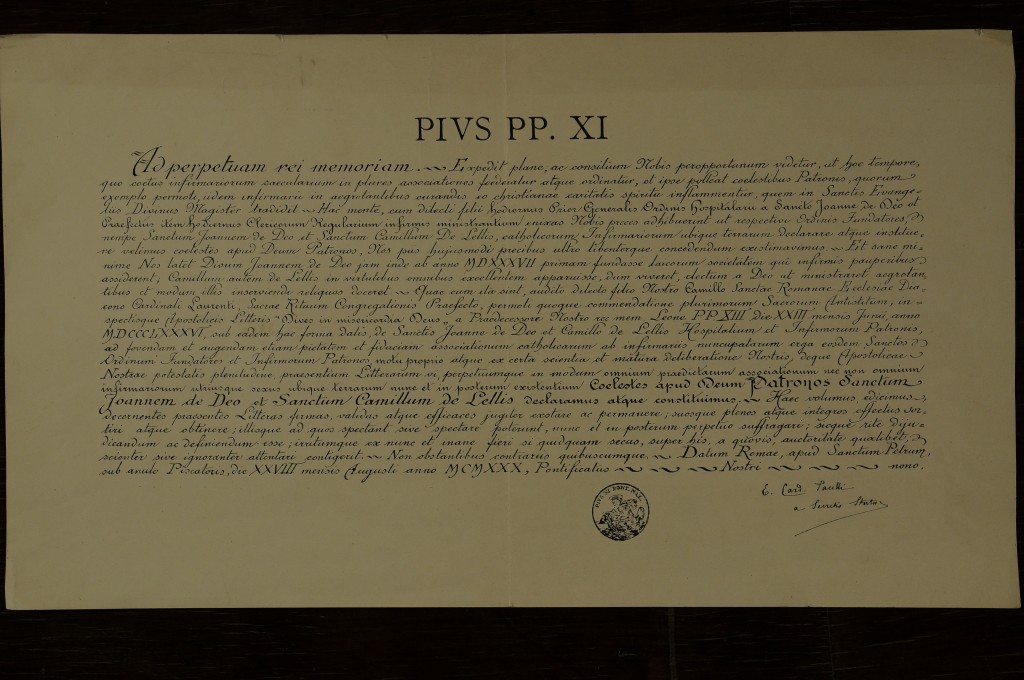 PIVS PP. XI
Ad perpetuam rei memoriam. ~ Expedit plane, ac consilium Nobis peropportunum videtur, ut hoc tempore,
quo coetus infirmariorum saecularium in plures associationes foederatur atque ordinatur, et ipse polleat coelestibus Patronis, quorum
exemplo permoti, iidem infirmarii in aegrotantibus curandis eo christianae caritatis spiritu inflammentur, quem in Sanctis Evange-
liis Divinus Magister tradidit ~ Hac mente, cum dilecti filii hodiernus Prior Generalis Ordinis Hospitalarii a Sancto Joanne de Deo et
Praefectus item hodiernus Clericorum Regularium infirmis ministrantium enixas Nobis preces adhibuerint ut respectivi Ordinis Fundatores,
nempe Sanctum Joannem de Deo et Sanctum Camillum De Lellis, catholicorum Infirmariorum ubique terrarum declarare atque institue-
re velimus coelestes apud Deum Patronos, Nos piis hujusmodi precibus ultro libenterque concedendum existimavimus. ~ Et sane mi-
nime Nos latet Divum Joannem de Deo jam inde ab anno MDXXXVII primam fundasse laicorum societatem qui infirmis pauperibus
assiderent; Camillum autem de Lellis in virtutibus omnibus excellentem apparuisse, dum viveret, electum a Deo ut ministraret aegrotan-
tibus et modum illis inserviendi reliquos doceret ~ Quae cum ita sint, audito dilecto filio Nostro Camillo Sanctae Romanae Ecclesiae Dia-
cono Cardinali Laurenti, Sacrae Rituum Congregationis Praefecto, permoti quoque commendatione plurimorum Sacrorum Antistitum, in-
spectisque Apostolicis Litteris "Dives in misericordia Deus", a Praedecessore Nostro rec. mem. Leone PP. XIII die XXIII mensis Junii, anno
MDCCCLXXXVI, sub eadem hac forma datis, de Sanctis Joanne de Deo et Camillo de Lellis Hospitalium et Infirmorum Patronis,
ad fovendam et augendam etiam pietatem et fiduciam associationum catholicarum ab infirmariis nuncupatarum erga eosdem Sanctos
Ordinum Fundatores et Infirmorum Patronos, motu proprio atque ex certa scientia et matura deliberatione Nostris, deque Apostolicae
Nostrae potestatis plenitudine, praesentium Litterarum vi, perpetuumque in modum omnium praedictarum associationum nec non omnium
infirmariorum utriusque sexus ubique terrarum nunc et in posterum existentium Coelestes apud Deum Patronos Sanctum
Joannem de Deo et Sanctum Camillum de Lellis declaramus atque constituimus. ~ Haec volumus, edicimus,
decernentes praesentes Litteras firmas, validas atque efficaces jugiter exstare ac permanere; suosque plenos atque integros effectus sor-
tiri atque obtinere; illisque ad quos spectant sive spectare poterunt, nunc et in posterum perpetuo suffragari; sicque rite diju-
dicandum ac definiendum esse; irritumque ex nunc et inane fieri si quidquam secus, super his, a quovis, auctoritate qualibet,
scienter sive ignoranter attentari contigerit. ~ Non obstantibus contrariis quibuscumque. ~ Datum Romae, apud Sanctum Petrum,
sub anulo Piscatoris, die XXVIII mensis Augusti anno MCMXXX, Pontificatus ~ ~ ~ ~ Nostri ~ ~ ~ ~ nono.
E. Card. Pacelli
a Secretis Status
PIVS XI PONT. MAX.